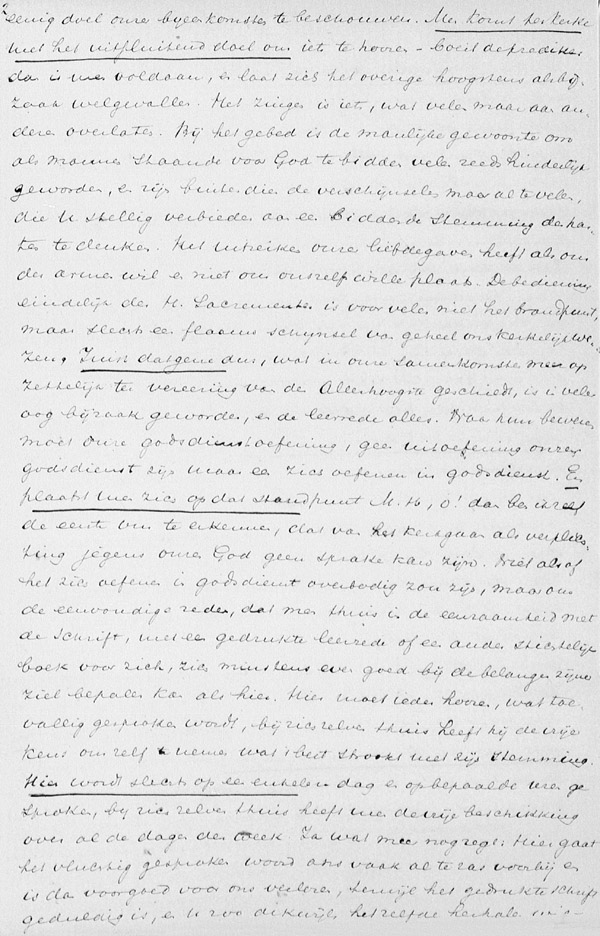 2
eenig doel onzer bijeenkomsten te beschouwen. Men komt ter kerke
met het uitsluitend doel om iets te hooren – boeit de prediker
dan is men voldaan, en laat zich het overige hoogstens als bij-
zaak welgevallen. Het zingen is iets, wat velen maar aan an-
deren overlaten. Bij het gebed is de manlijke gewoonte om
als mannen staande voor God te bidden velen reeds hinderlijk
geworden, en zijn buitendien de verschijnselen maar al te velen,
die U stellig verbieden aan een biddende stemming der har-
ten te denken. Het uitreiken onzer liefdegaven heeft als om
der armen wil en niet om onzentwille plaats. De bediening
eindelijk der H. Sacramenten is voor velen niet het brandpunt,
maar slechts een flaauw schijnsel van geheel ons kerkelijk we-
zen. Juist datgene dus, wat in onze samenkomsten meer op
zettelijk ter vereering van den Allerhoogste geschiedt, is in veler
oog bijzaak geworden, en de leerrede alles. Naar hun beweren
moet onze godsdienstoefening, geen uitoefening onzer
godsdienst zijn maar een zich oefenen in godsdienst. En
plaatst men zich op dat standpunt M. H, o! dan ben ik zelf
de eerste om te erkennen, dat van het kerkgaan als verplich-
ting jegens onzen God geen sprake kan zijn. Niet alsof
het zich oefenen in godsdienst overbodig zou zijn, maar om
de eenvoudige reden, dat men thuis in de eenzaamheid met
de Schrift, met een gedrukte leerrede of een ander stichtelijk
boek voor zich, zich minstens even goed bij de belangen zijner
ziel bepalen kan als hier. Hier moet ieder hooren, wat toe-
vallig gesproken wordt, bij zich zelven thuis heeft hij de vrije
keus om zelf te nemen wat 't best strookt met zijn stemming.
Hier wordt slechts op een enkelen dag en op bepaalde uren ge
sproken, bij zich zelven thuis heeft men de vrije beschikking
over al de dagen der week. Ja wat meer nog zegt: Hier gaat
het vluchtig gesproken woord ons vaak al te ras voorbij en
is dan voorgoed voor ons verloren, terwijl het gedrukte schrift
geduldig is, en U zoo dikwijls hetzelfde herhalen